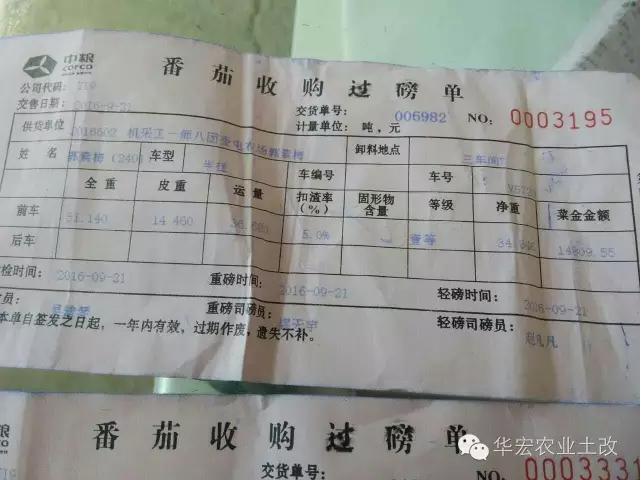 中粮
COFCO
番茄收购过磅单
公司代码: 719
交售日期: 2016-9-21
交货单号: 006982 NO: 0003195
计量单位: 吨,元
供货单位 2016502 机采工一师八团 农场郭素梅 卸料地点 三车间
姓名 郭素梅(240 车型 半挂 车编号 车号
全重 皮重 运量 扣渣率(%) 固形物含量 等级 净重 菜金金额
前车 51.140 14 460 5.0% 壹等 34 14809.55
后车
检时间: 2016-09-21 重磅时间: 2016-09-21 轻磅时间: 2016-09-21
员: 重磅司磅员: 轻磅司磅员: 赵凡凡
本单自签发之日起,一年内有效,过期作废,遗失不补。
粮
番茄收购过磅单
719
交货单号: NO: 0003331
华宏农业土改